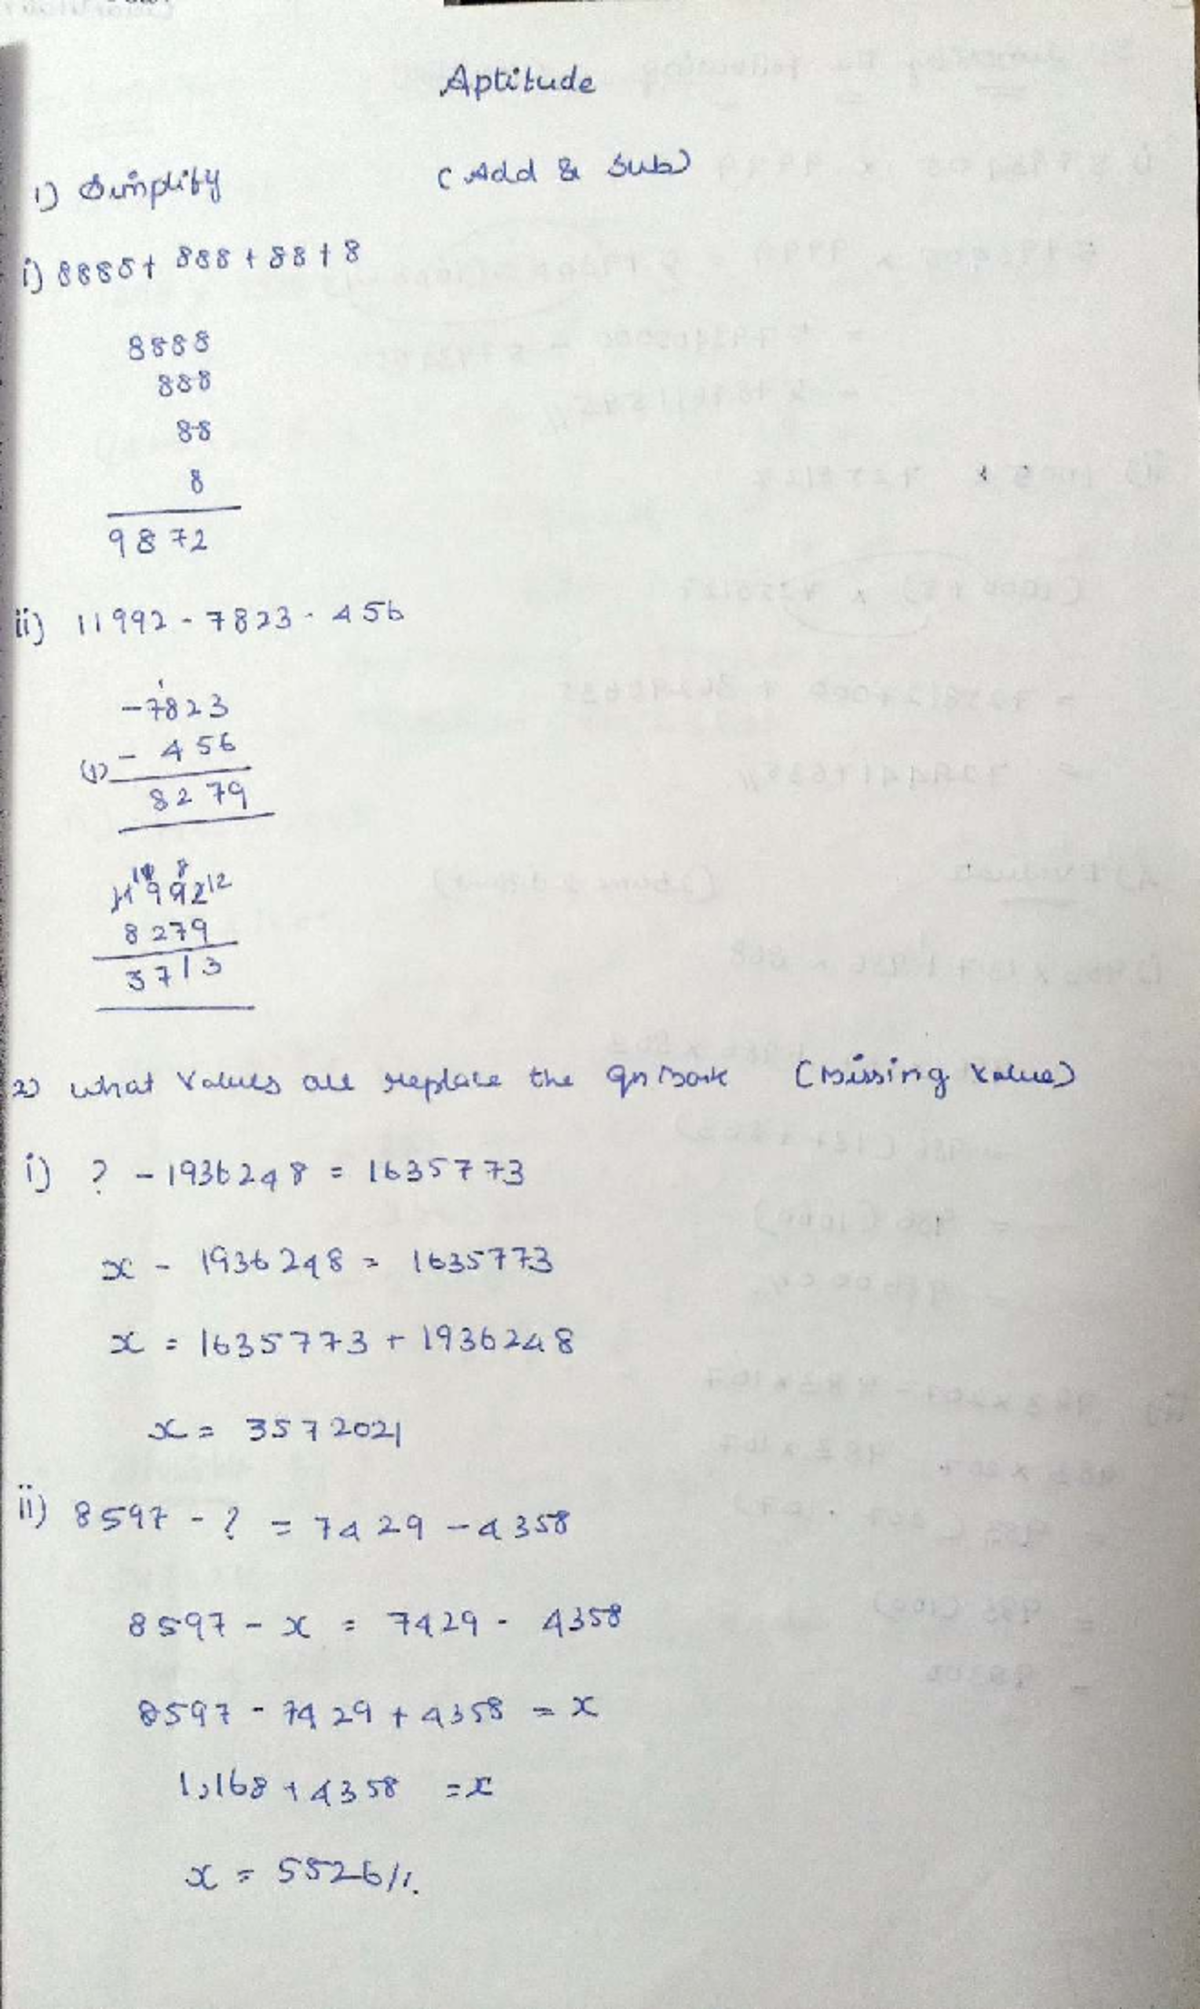 Aptitude
1) Simplify (Add & Sub)
i) 8888+ 888 + 88 + 8
8888
888
88
8
9872
ii) 11992 - 7823 - 456
-7823
(+) - 456
8279
11992
8279
3713
2) What Values are replace the qn Mark (Missing Value)
i) ? - 1936248 = 1635773
x - 1936248 = 1635773
x = 1635773 + 1936248
x = 3572021
ii) 8597 - ? = 7429 - 4358
8597 - x = 7429 - 4358
8597 - 7429 + 4358 = x
1,168 + 4358 = x
x = 5526//.